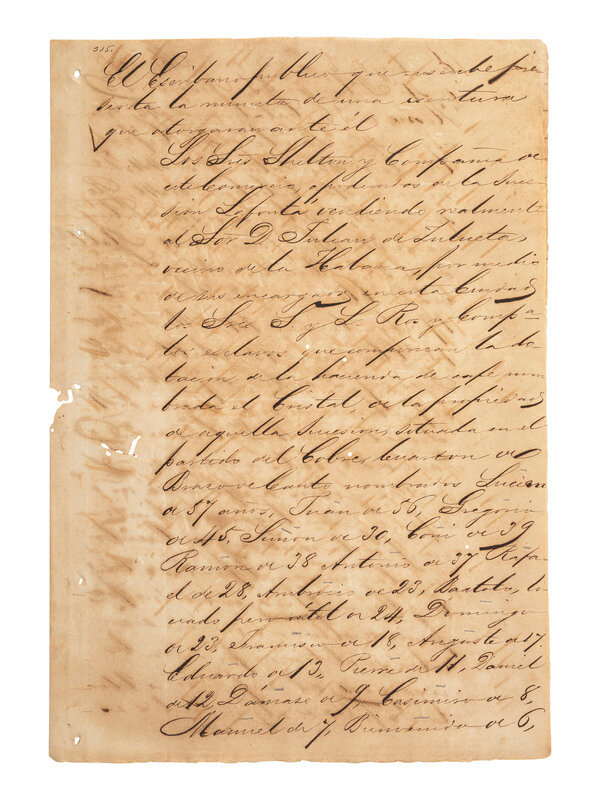 315.
El Escribano publico que suscribe pre
senta la minuta de una escritura
que otorgarán ante él
Los Sres Shelton y Compañia de
este Comercio, apoderados de la Suce
sion Lafontá vendiendo realmente
al Sor D. Julian de Zulueta,
vecino de la Habana, por medio
de sus encargados en esta Ciudad
los Sres F. y L. Ros y Compa
los esclavos que componian la do
tacion de la hacienda de café nom
brada el Cristal de la propiedad
de aquella Sucesion, situada en el
partido del Cobre, cuarton de
Brazo de Cauto nombrados Lucien
de 57 años, Juan de 56, Gregorio
de 45, Simon de 30, Coñi de 39
Ramon de 38 Antonio de 37 Rafa
el de 28, Ambrosio de 23, Bartolo,
pero útil de 24, Domingo
de 23, Francisco de 18, Auguste de 17.
Eduardo de 13, Pierre de 11, Daniel
de 12 Dámaso de 9 Casimiro de 8,
Manuel de 7, Bienvenido de 6,